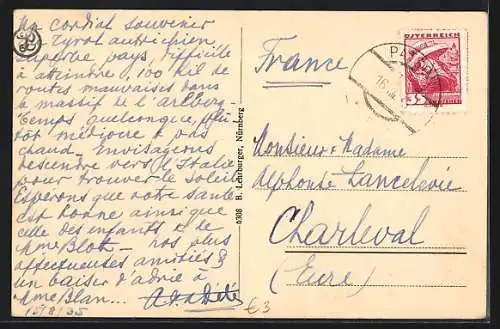 Un cordial souvenir
du Tyrol autrichien
superbe pays, difficile
à atteindre, 100 kil de
routes mauvaises dans
le massif de l'arlberg
Temps quelconque, plu
tôt médiocre & pas
chaud. Envisageons
descendre vers l'Italie
pour trouver le soleil
Espérons que votre santé
est bonne ainsi que
celle des enfants & de
Mme Blok – nos plus
affectueuses amitiés &
un baiser d'adrié à
Mme Blan...
15/8/35
6308 B. Leinburger, Nürnberg
ÖSTERREICH
35
France
Monsieur & Madame
Alphonse Lancelevée
Charleval
(Eure)
€3